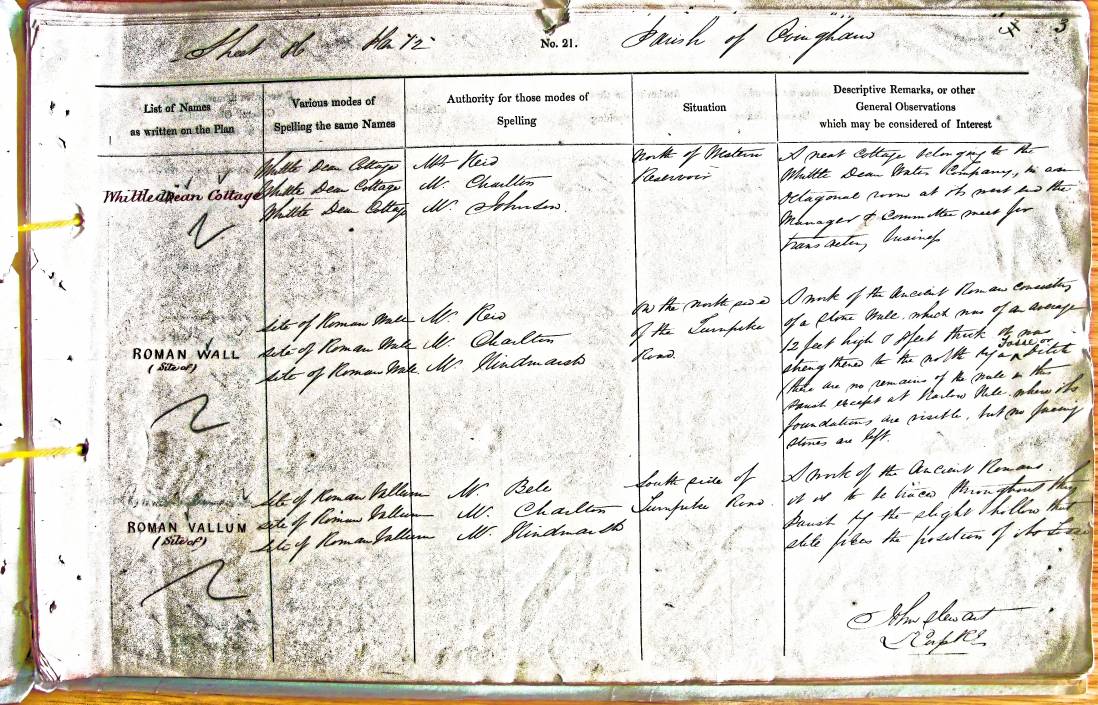 Sheet 16 Plan 12 No. 21. Parish of Ovingham 3
List of Names
as written on the Plan
Various modes of
Spelling the same Names
Authority for those modes of
Spelling
Situation
Descriptive Remarks, or other
General Observations
which may be considered of Interest
Whittle Dean Cottage
Whittle Dean Cottage
Whittle Dean Cottage
Whittle Dean Cottage
Mr. Reid
Mr. Charlton
Mr. Johnson.
North of Western
Reservoir
A neat Cottage belonging to the
Whittle Dean Water Company, in an
Octagonal room at its west end the
Manager & Committee meet for
transacting business
ROMAN WALL
(Site of)
Site of Roman Wall
Site of Roman Wall
Site of Roman Wall
Mr. Reid
Mr. Charlton
Mr. Hindmarsh
On the north side
of the Turnpike
Road.
A work of the Ancient Romans consisting
of a Stone Wall, which was of an average
12 feet high & 8 feet thick & was
strengthened to the north by a Fosse or Ditch
there are no remains of the wall in this
Parish except at Harlow Hill where its
foundations are visible, but no facing
stones are left.
ROMAN VALLUM
(Site of)
Site of Roman Vallum
Site of Roman Vallum
Site of Roman Vallum
Mr. Bell
Mr. Charlton
Mr. Hindmarsh
South side of
Turnpike Road
A work of the Ancient Romans.
it is to be traced throughout this
Parish by the slight hollow that
still fixes the position of its
John Stewart
Corpl RE